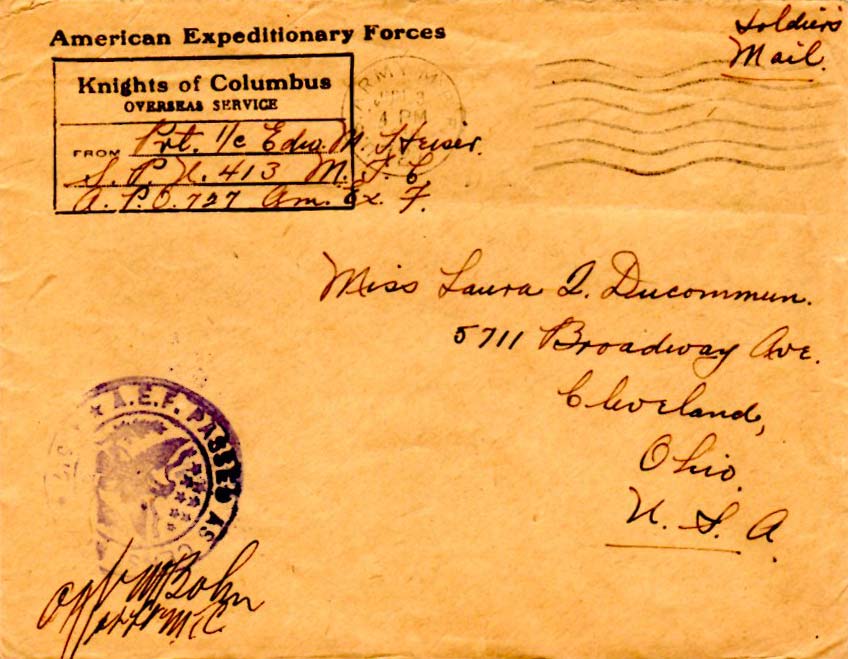 American Expeditionary Forces
Soldier's
Mail.
Knights of Columbus
OVERSEAS SERVICE
FROM Pvt. 1/c Edw. M. Heiser.
S. P. U. 413 M. T. C
A. P. O. 727 Am. Ex. F.
ARMY
3
4 PM
Miss Laura I. Ducommun.
5711 Broadway Ave.
Cleveland,
Ohio
U. S. A.
A.E.F. PASSED AS
Bohn